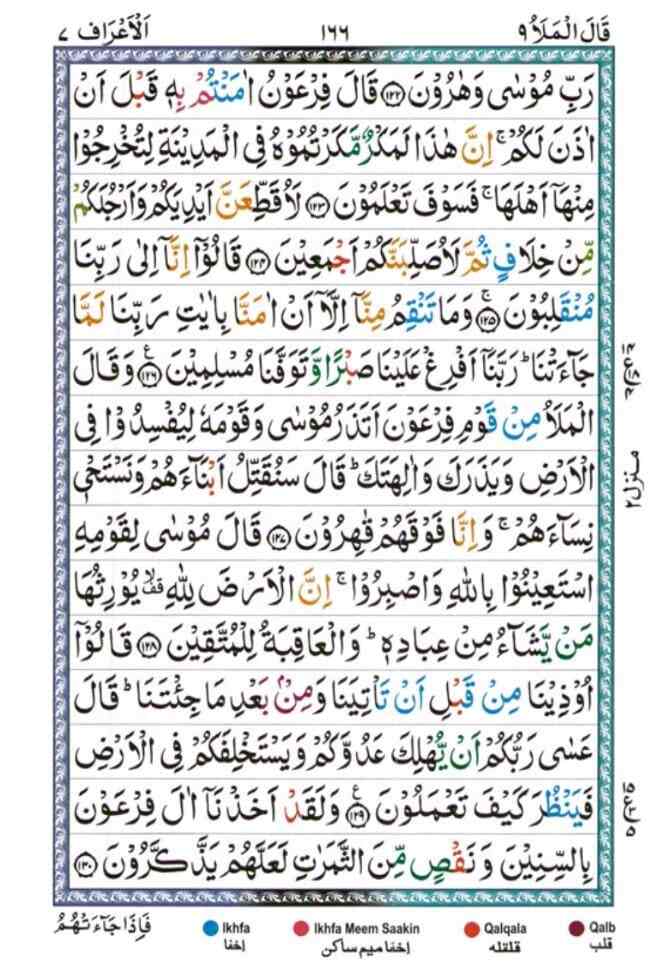 قَالَ الْمَلَاُ ٩ ١٦٦ اَلْاَعْرَاف ٧
رَبِّ مُوْسٰى وَهٰرُوْنَ ﴿١٢٢﴾ قَالَ فِرْعَوْنُ اٰمَنْتُمْ بِهٖ قَبْلَ اَنْ
اٰذَنَ لَكُمْ ۚ اِنَّ هٰذَا لَمَكْرٌ مَّكَرْتُمُوْهُ فِى الْمَدِيْنَةِ لِتُخْرِجُوْا
مِنْهَاۤ اَهْلَهَا ۚ فَسَوْفَ تَعْلَمُوْنَ ﴿١٢٣﴾ لَاُقَطِّعَنَّ اَيْدِيَكُمْ وَاَرْجُلَكُمْ
مِّنْ خِلَافٍ ثُمَّ لَاُصَلِّبَنَّكُمْ اَجْمَعِيْنَ ﴿١٢٤﴾ قَالُوْۤا اِنَّاۤ اِلٰى رَبِّنَا
مُنْقَلِبُوْنَ ﴿١٢٥﴾ ۚ وَمَا تَنْقِمُ مِنَّاۤ اِلَّاۤ اَنْ اٰمَنَّا بِاٰيٰتِ رَبِّنَا لَمَّا
جَآءَتْنَا ؕ رَبَّنَاۤ اَفْرِغْ عَلَيْنَا صَبْرًا وَّتَوَفَّنَا مُسْلِمِيْنَ ﴿١٢٦﴾ ع وَقَالَ
الْمَلَاُ مِنْ قَوْمِ فِرْعَوْنَ اَتَذَرُ مُوْسٰى وَقَوْمَهٗ لِيُفْسِدُوْا فِى
الْاَرْضِ وَيَذَرَكَ وَاٰلِهَتَكَ ؕ قَالَ سَنُقَتِّلُ اَبْنَآءَهُمْ وَنَسْتَحْىٖ
نِسَآءَهُمْ ۚ وَاِنَّا فَوْقَهُمْ قٰهِرُوْنَ ﴿١٢٧﴾ قَالَ مُوْسٰى لِقَوْمِهِ
اسْتَعِيْنُوْا بِاللّٰهِ وَاصْبِرُوْا ۚ اِنَّ الْاَرْضَ لِلّٰهِ ۙ قف يُوْرِثُهَا
مَنْ يَّشَآءُ مِنْ عِبَادِهٖ ؕ وَالْعَاقِبَةُ لِلْمُتَّقِيْنَ ﴿١٢٨﴾ قَالُوْۤا
اُوْذِيْنَا مِنْ قَبْلِ اَنْ تَاْتِيَنَا وَمِنْۢ بَعْدِ مَا جِئْتَنَا ؕ قَالَ
عَسٰى رَبُّكُمْ اَنْ يُّهْلِكَ عَدُوَّكُمْ وَيَسْتَخْلِفَكُمْ فِى الْاَرْضِ
فَيَنْظُرَ كَيْفَ تَعْمَلُوْنَ ﴿١٢٩﴾ ع وَلَقَدْ اَخَذْنَاۤ اٰلَ فِرْعَوْنَ
بِالسِّنِيْنَ وَنَقْصٍ مِّنَ الثَّمَرٰتِ لَعَلَّهُمْ يَذَّكَّرُوْنَ ﴿١٣٠﴾
منزل ٢
فَاِذَا جَآءَتْهُمُ
Ikhfa Ikhfa Meem Saakin Qalqala Qalb
إخفا إخفا ميم ساكن قلقله قلب